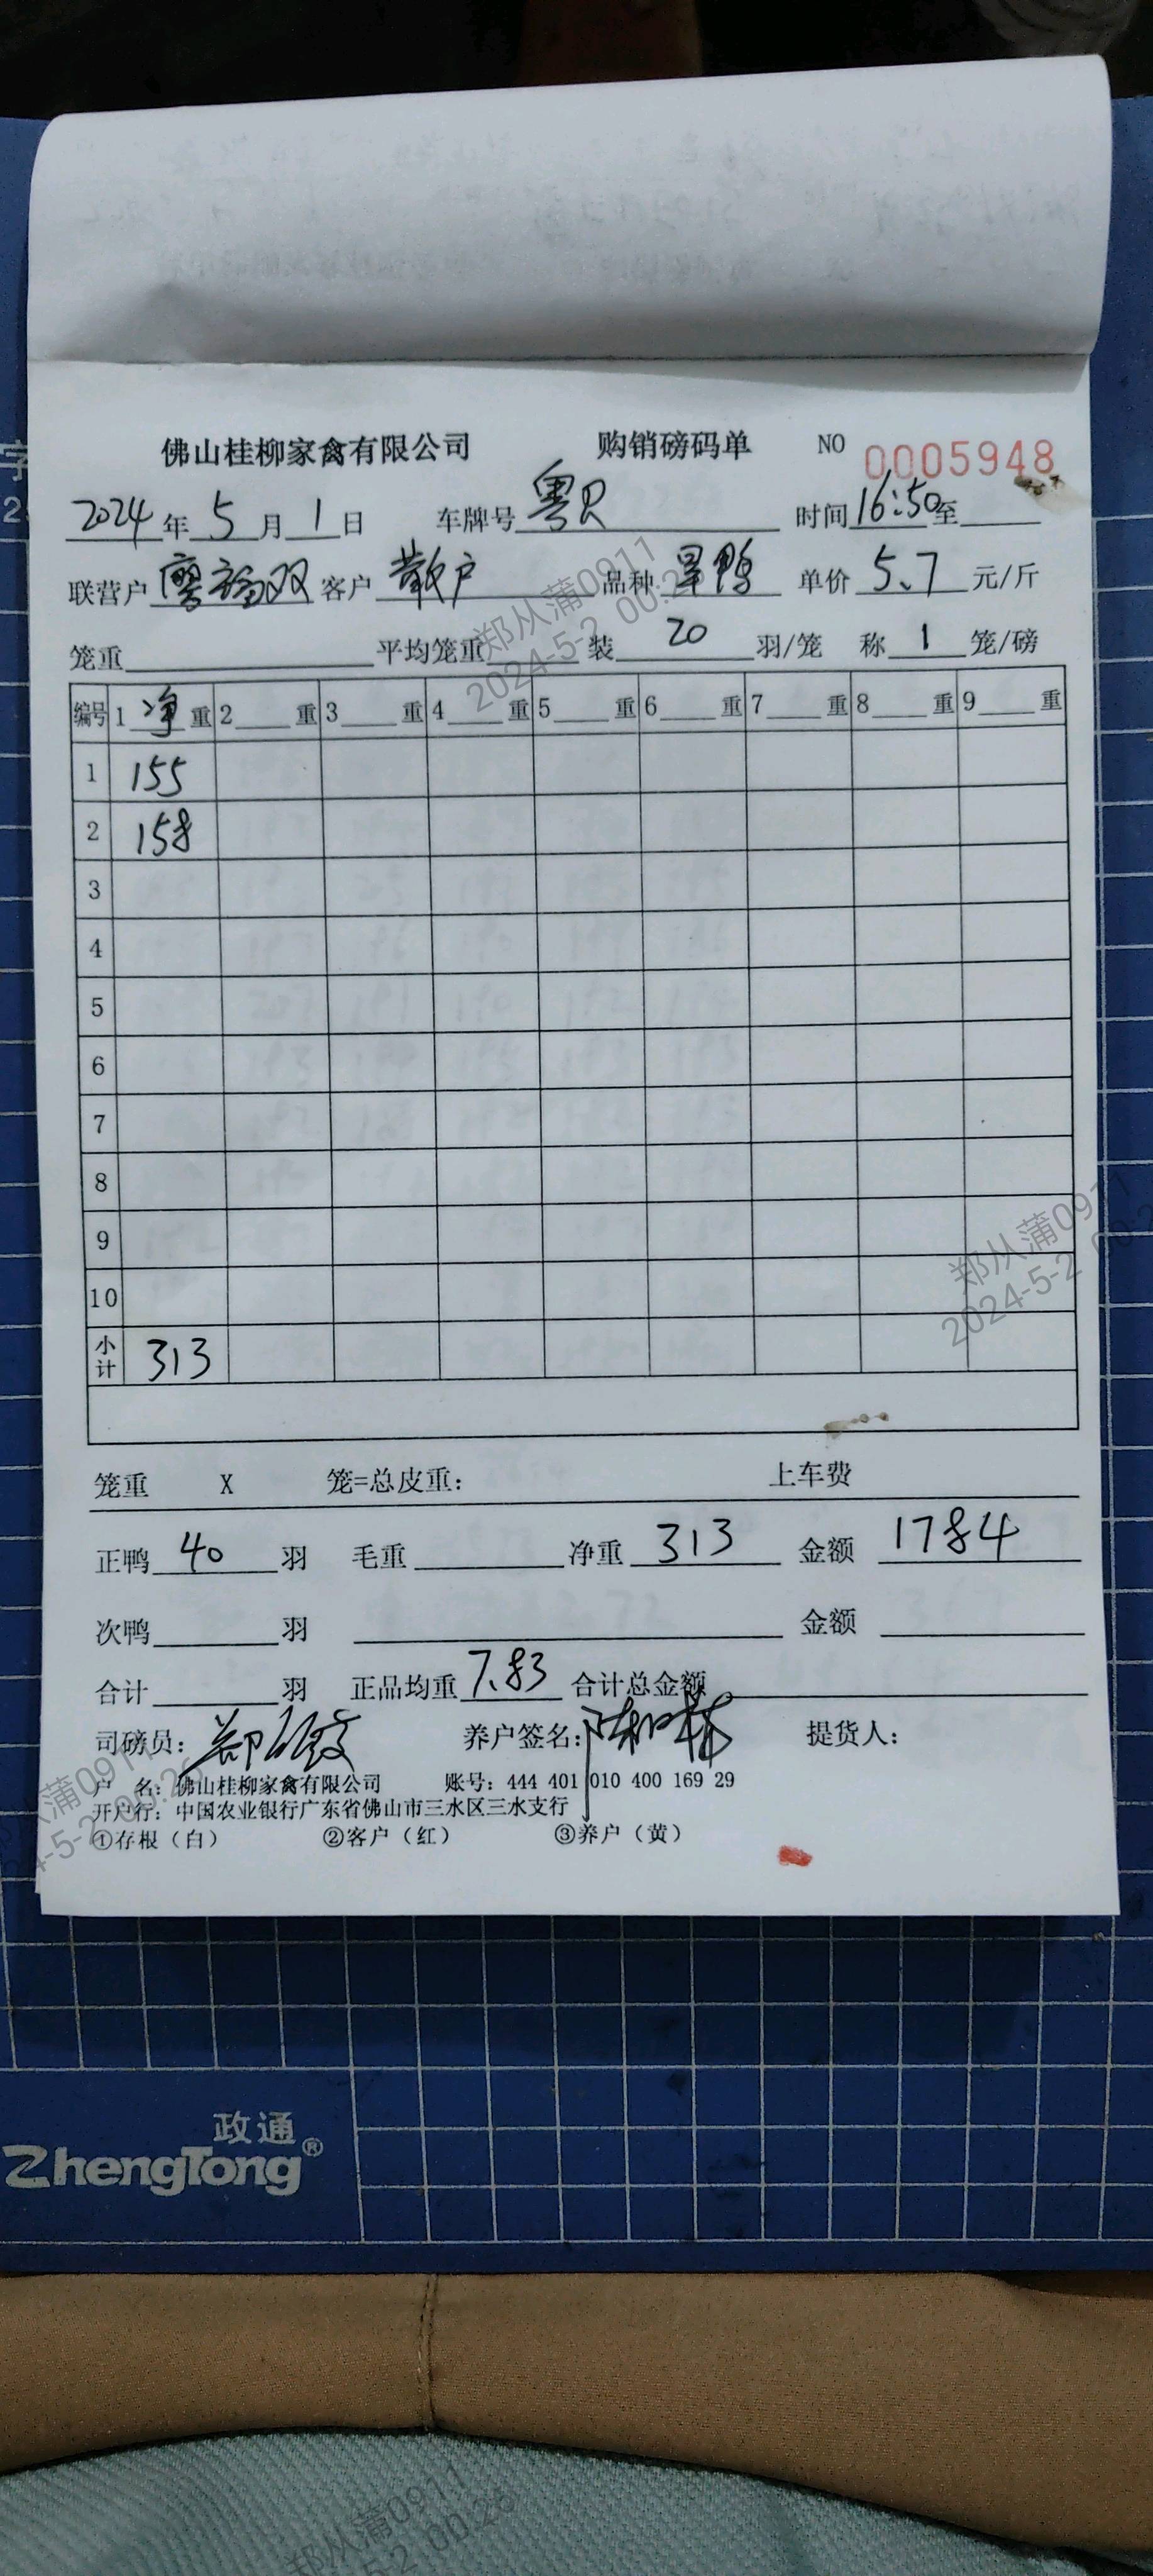 佛山桂柳家禽有限公司 购销磅码单 NO 0005948
2024年5月1日 车牌号 粤 时间16:50至
联营户 客户 散户 品种 旱鸭 单价 5.7 元/斤
笼重 平均笼重 装 20 羽/笼 称 1 笼/磅
编号 1 净 重 2 重 3 重 4 重 5 重 6 重 7 重 8 重 9 重
1 155
2 158
3
4
5
6
7
8
9
10
小计 313
笼重 X 笼=总皮重: 上车费
正鸭 40 羽 毛重 净重 313 金额 1784
次鸭 羽 金额
合计 羽 正品均重 7.83 合计总金额
司磅员: 养户签名: 提货人:
户 名: 佛山桂柳家禽有限公司 账号: 444 401 010 400 169 29
开户行: 中国农业银行广东省佛山市三水区三水支行
①存根（白） ②客户（红） ③养户（黄）
郑从蒲0911
2024-5-2 00:26
郑从蒲0911
2024-5-2
政通®
ZhengTong